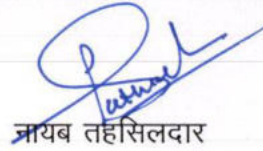 नायब तहसिलदार